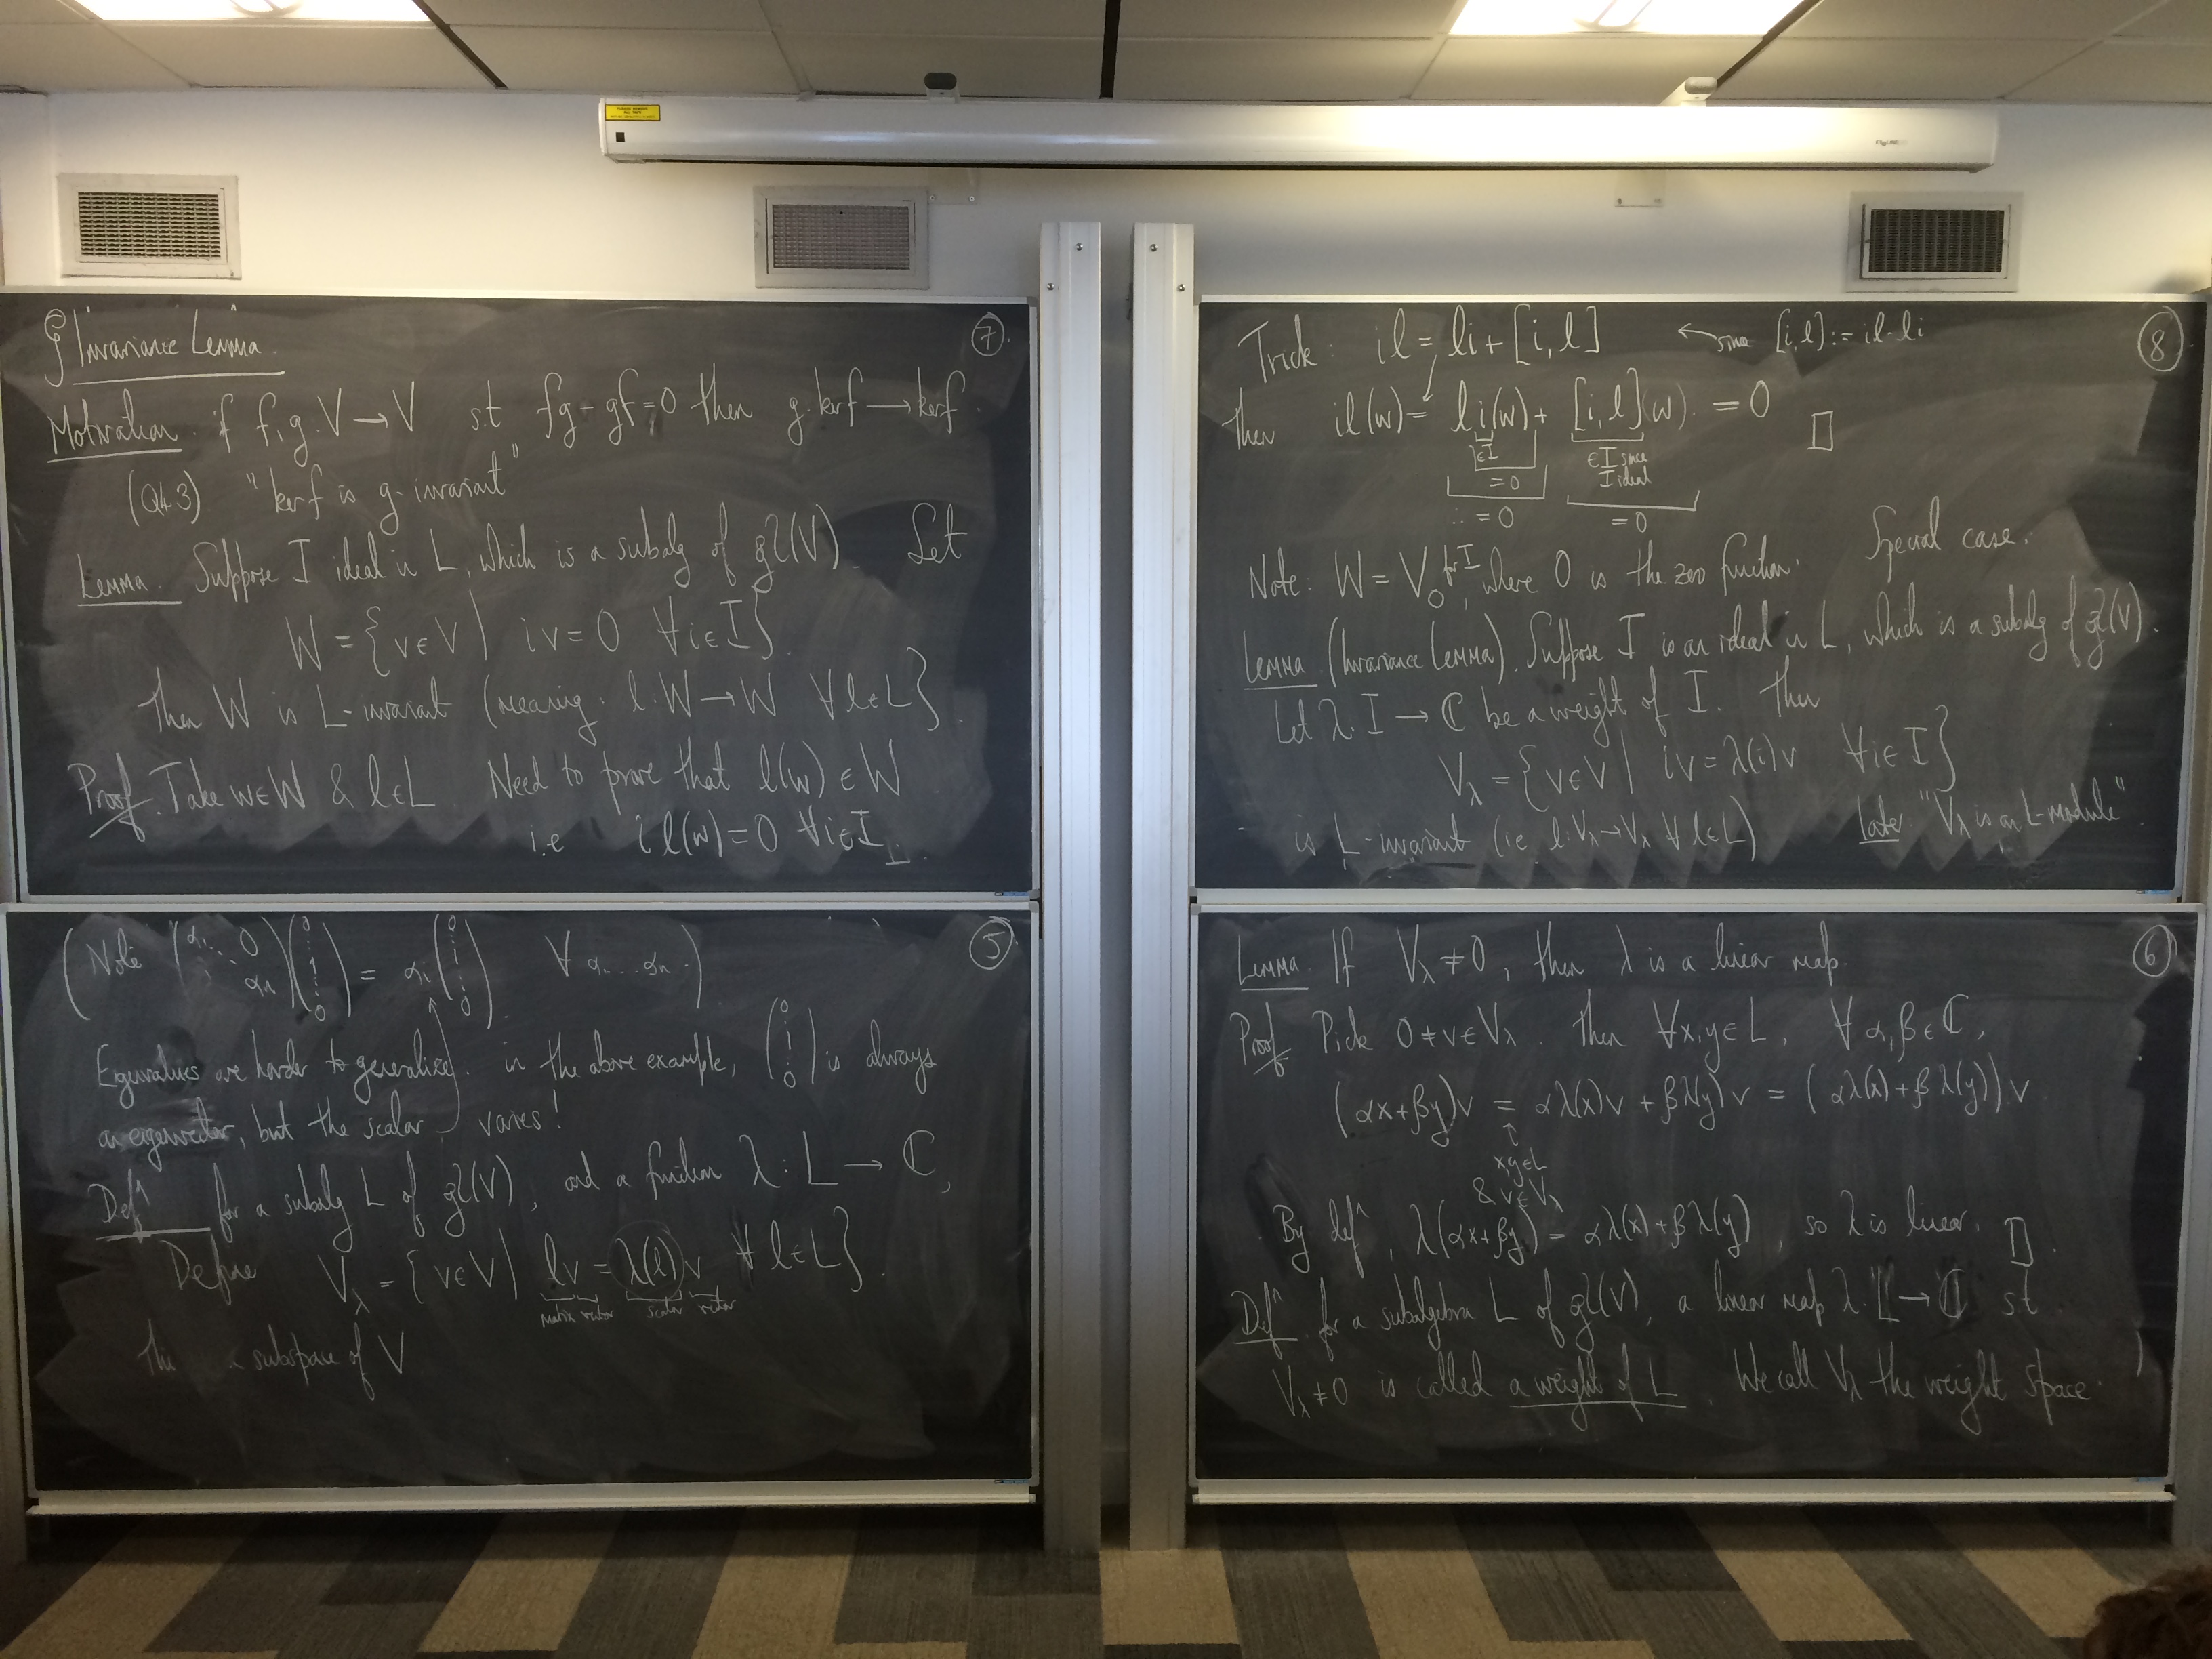 § Invariance Lemma. ⑦
Motivation. if f,g: V → V st fg - gf = 0 then g: kerf → kerf.
(Q4.3) "kerf is g-invariant"
Lemma. Suppose I ideal in L, which is a subalg of gl(V). Let
W = {v ∈ V | iv = 0 ∀i ∈ I}.
Then W is L-invariant (meaning: l: W → W ∀ l ∈ L}.
Proof. Take w∈W & l∈L. Need to prove that l(w) ∈ W
i.e il(w) = 0 ∀i∈I.
Trick: il = li + [i,l] ← since [i,l] := il-li ⑧
Then il(w) = li(w) + [i,l](w). = 0 □
∈I ∈I since
I ideal
= 0
∴ = 0 = 0
Note: W = V₀ for I, where 0 is the zero function. Special case.
Lemma (Invariance Lemma). Suppose I is an ideal in L, which is a subalg of gl(V).
Let λ: I → ℂ be a weight of I. Then
V_λ = {v∈V | iv = λ(i)v ∀i∈I}
is L-invariant (ie l: V_λ → V_λ ∀ l∈L) Later: "V_λ is an L-module"
(Note (α₁ ⋱ 0 αn)(0 ⋮ 1 ⋮ 0) = αᵢ(0 ⋮ 1 ⋮ 0) ∀ α₁ ... αn.) ⑤
Eigenvalues are harder to generalise: in the above example, (0 ⋮ 1 ⋮ 0) is always
an eigenvector, but the scalar varies!
Defⁿ for a subalg L of gl(V), and a function λ: L → ℂ,
Define V_λ = {v∈V | lv = λ(l)v ∀ l∈L}.
matrix vector scalar vector
This a subspace of V
Lemma. If V_λ ≠ 0, then λ is a linear map. ⑥
Proof Pick 0 ≠ v ∈ V_λ. Then ∀x,y ∈ L, ∀ α,β ∈ ℂ,
(αx+βy)v = αλ(x)v + βλ(y)v = (αλ(x) + βλ(y))v
↑
x,y∈L
& v∈V_λ
By defⁿ, λ(αx+βy) = αλ(x) + βλ(y), so λ is linear. □.
Defⁿ. for a subalgebra L of gl(V), a linear map λ: L → ℂ st
V_λ ≠ 0 is called a weight of L. We call V_λ the weight space.